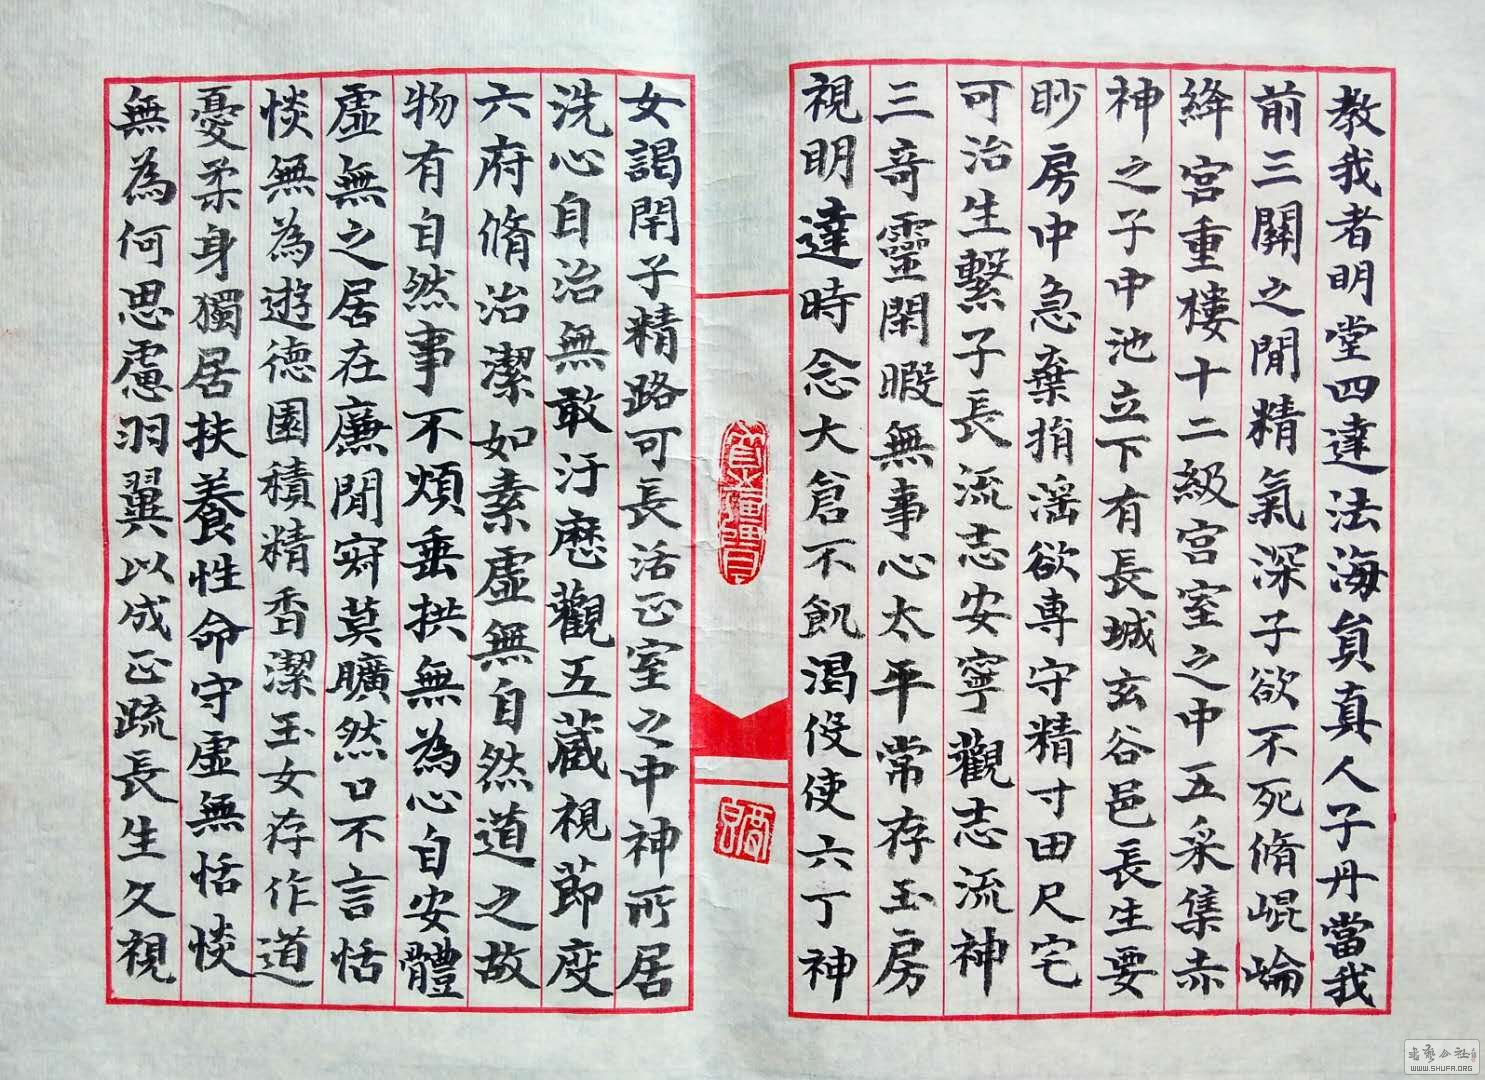 教我者明堂四達法海員真人子丹當我
前三關之間精氣深子欲不死脩崐崘
絳宮重樓十二級宮室之中五采集赤
神之子中池立下有長城玄谷邑長生要
眇房中急棄捐滛欲専守精寸田尺宅
可治生繫子長流志安寧觀志流神
三竒靈閑暇無事心太平常存玉房
視明達時念大倉不飢渴伇使六丁神
女謁閇子精路可長活正室之中神所居
洗心自治無敢汙歴觀五蔵視節度
六府脩治潔如素虛無自然道之故
物有自然事不煩垂拱無為心自安體
虛無之居在廉間寂莫曠然口不言恬
惔無為遊德園積精香潔玉女存作道
憂柔身獨居扶養性命守虛無恬惔
無為何思慮羽翼以成正疏長生久視
WWW.SHUFA.ORG